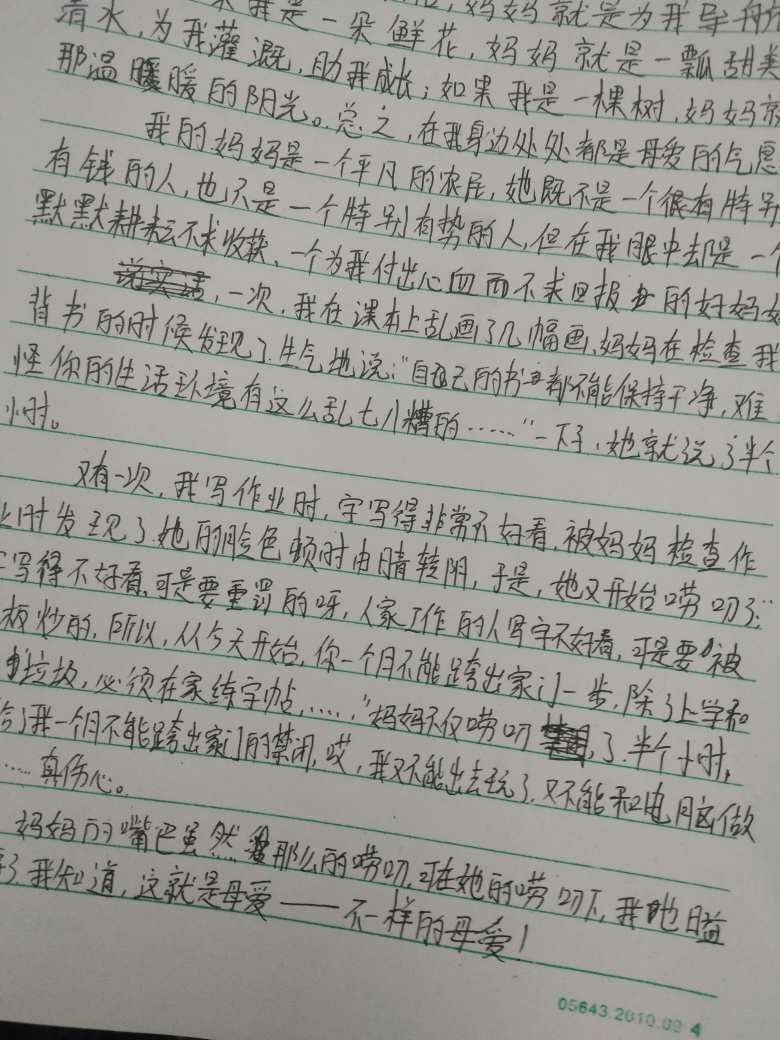 我是一朵鲜花，妈妈就是为我
清水，为我灌溉，助我成长；如果我是一棵树，妈妈就
那温暖暖的阳光。总之，在我身边处处都是母爱的气息
我的妈妈是一个平凡的农民，她既不是一个很有特别
有钱的人，也不是一个特别有势的人，但在我眼中却是一个
默默耕耘不求收获、一个为我付出心血而不求回报的好妈妈
一次，我在课本上乱画了几幅画，妈妈在检查我
背书的时候发现了，生气地说：“自己的书都不能保持干净，难
怪你的生活环境有这么乱七八糟的……”一下子，她就说了半个
小时。
又有一次，我写作业时，字写得非常不好看，被妈妈检查作
业时发现了，她的脸色顿时由晴转阴，于是，她又开始唠叨了：“
写得不好看，可是要重罚的呀，人家工作的人写字不好看，可是要被
板炒的，所以，从今天开始，你一个月不能跨出家门一步，除了上学和
垃圾，必须在家练字帖……”妈妈不仅唠叨了半个小时，
给了我一个月不能跨出家门的禁闭，哎，我又不能出去玩了，又不能和电脑做
……真伤心。
妈妈的嘴巴虽然那么的唠叨，可在她的唠叨下，我日益
了，我知道，这就是母爱——不一样的母爱！
05643.2010.09 4